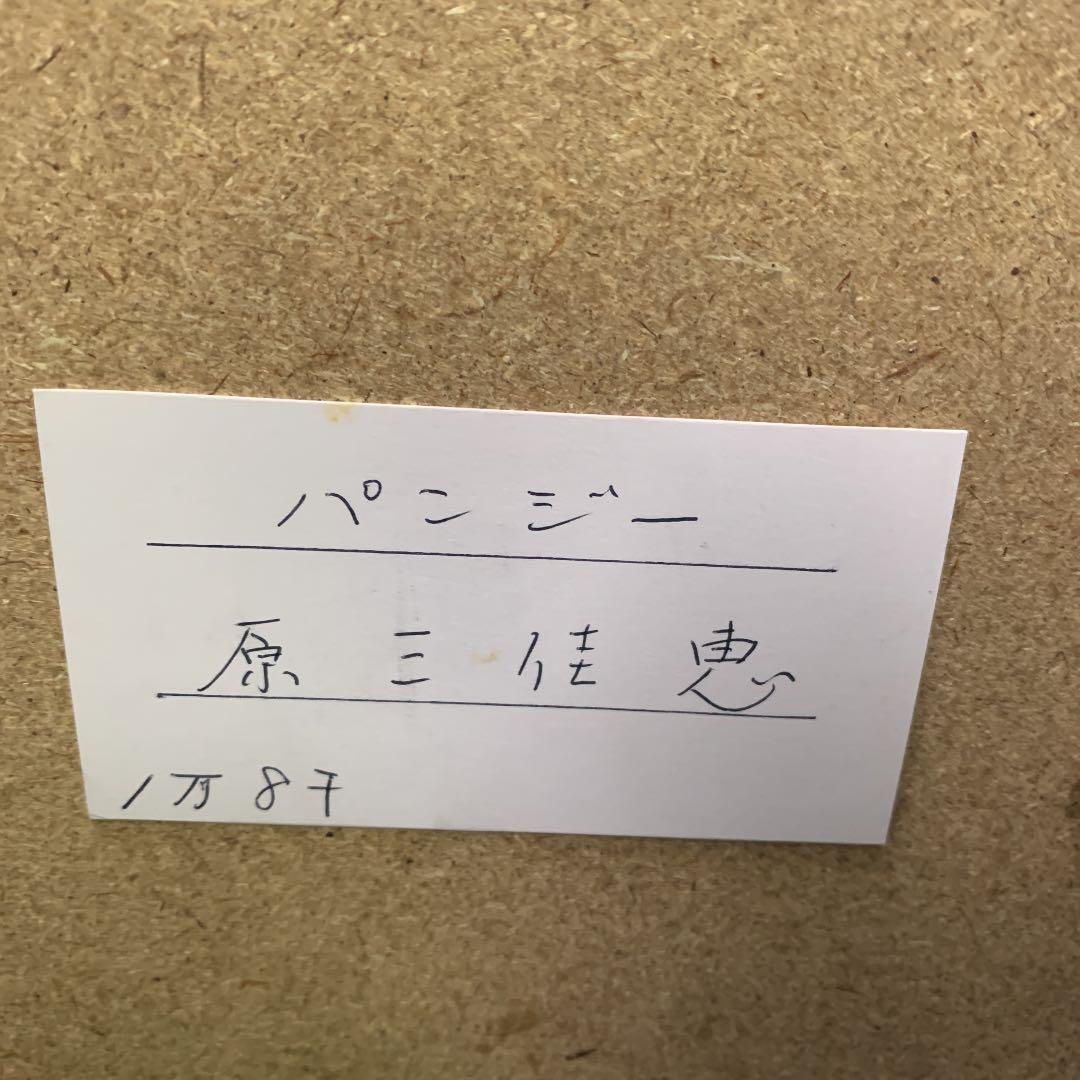 パンジー
原 三佳恵
1万8千